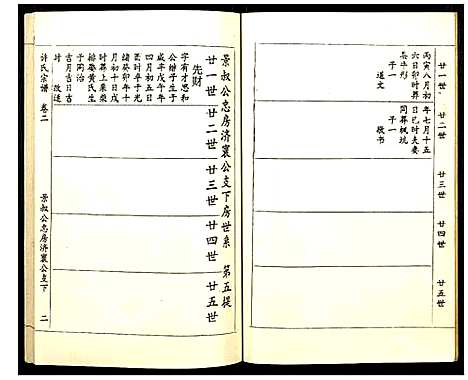 廿一世
廿二世
廿三世
廿四世
廿五世
丙寅八月初
六日卯時葬
子一
遠文
年七月十五
日巳時夫妻
同葬楓坑
子一
啟书
景叔公忠房濟寰公支下房世系 第五提
廿一世 廿二世 廿三世 廿四世 廿五世
先財
字有才忠和
公継子生于
咸丰戊午年
四月初六日
丑時卒于光
緒癸卯年十
月初十日戌
時葬上来榮
排娶黄氏生
于同治
吉月吉日吉
時 故逺
許氏宗譜 卷二
景叔公忠房濟寰公支下 二